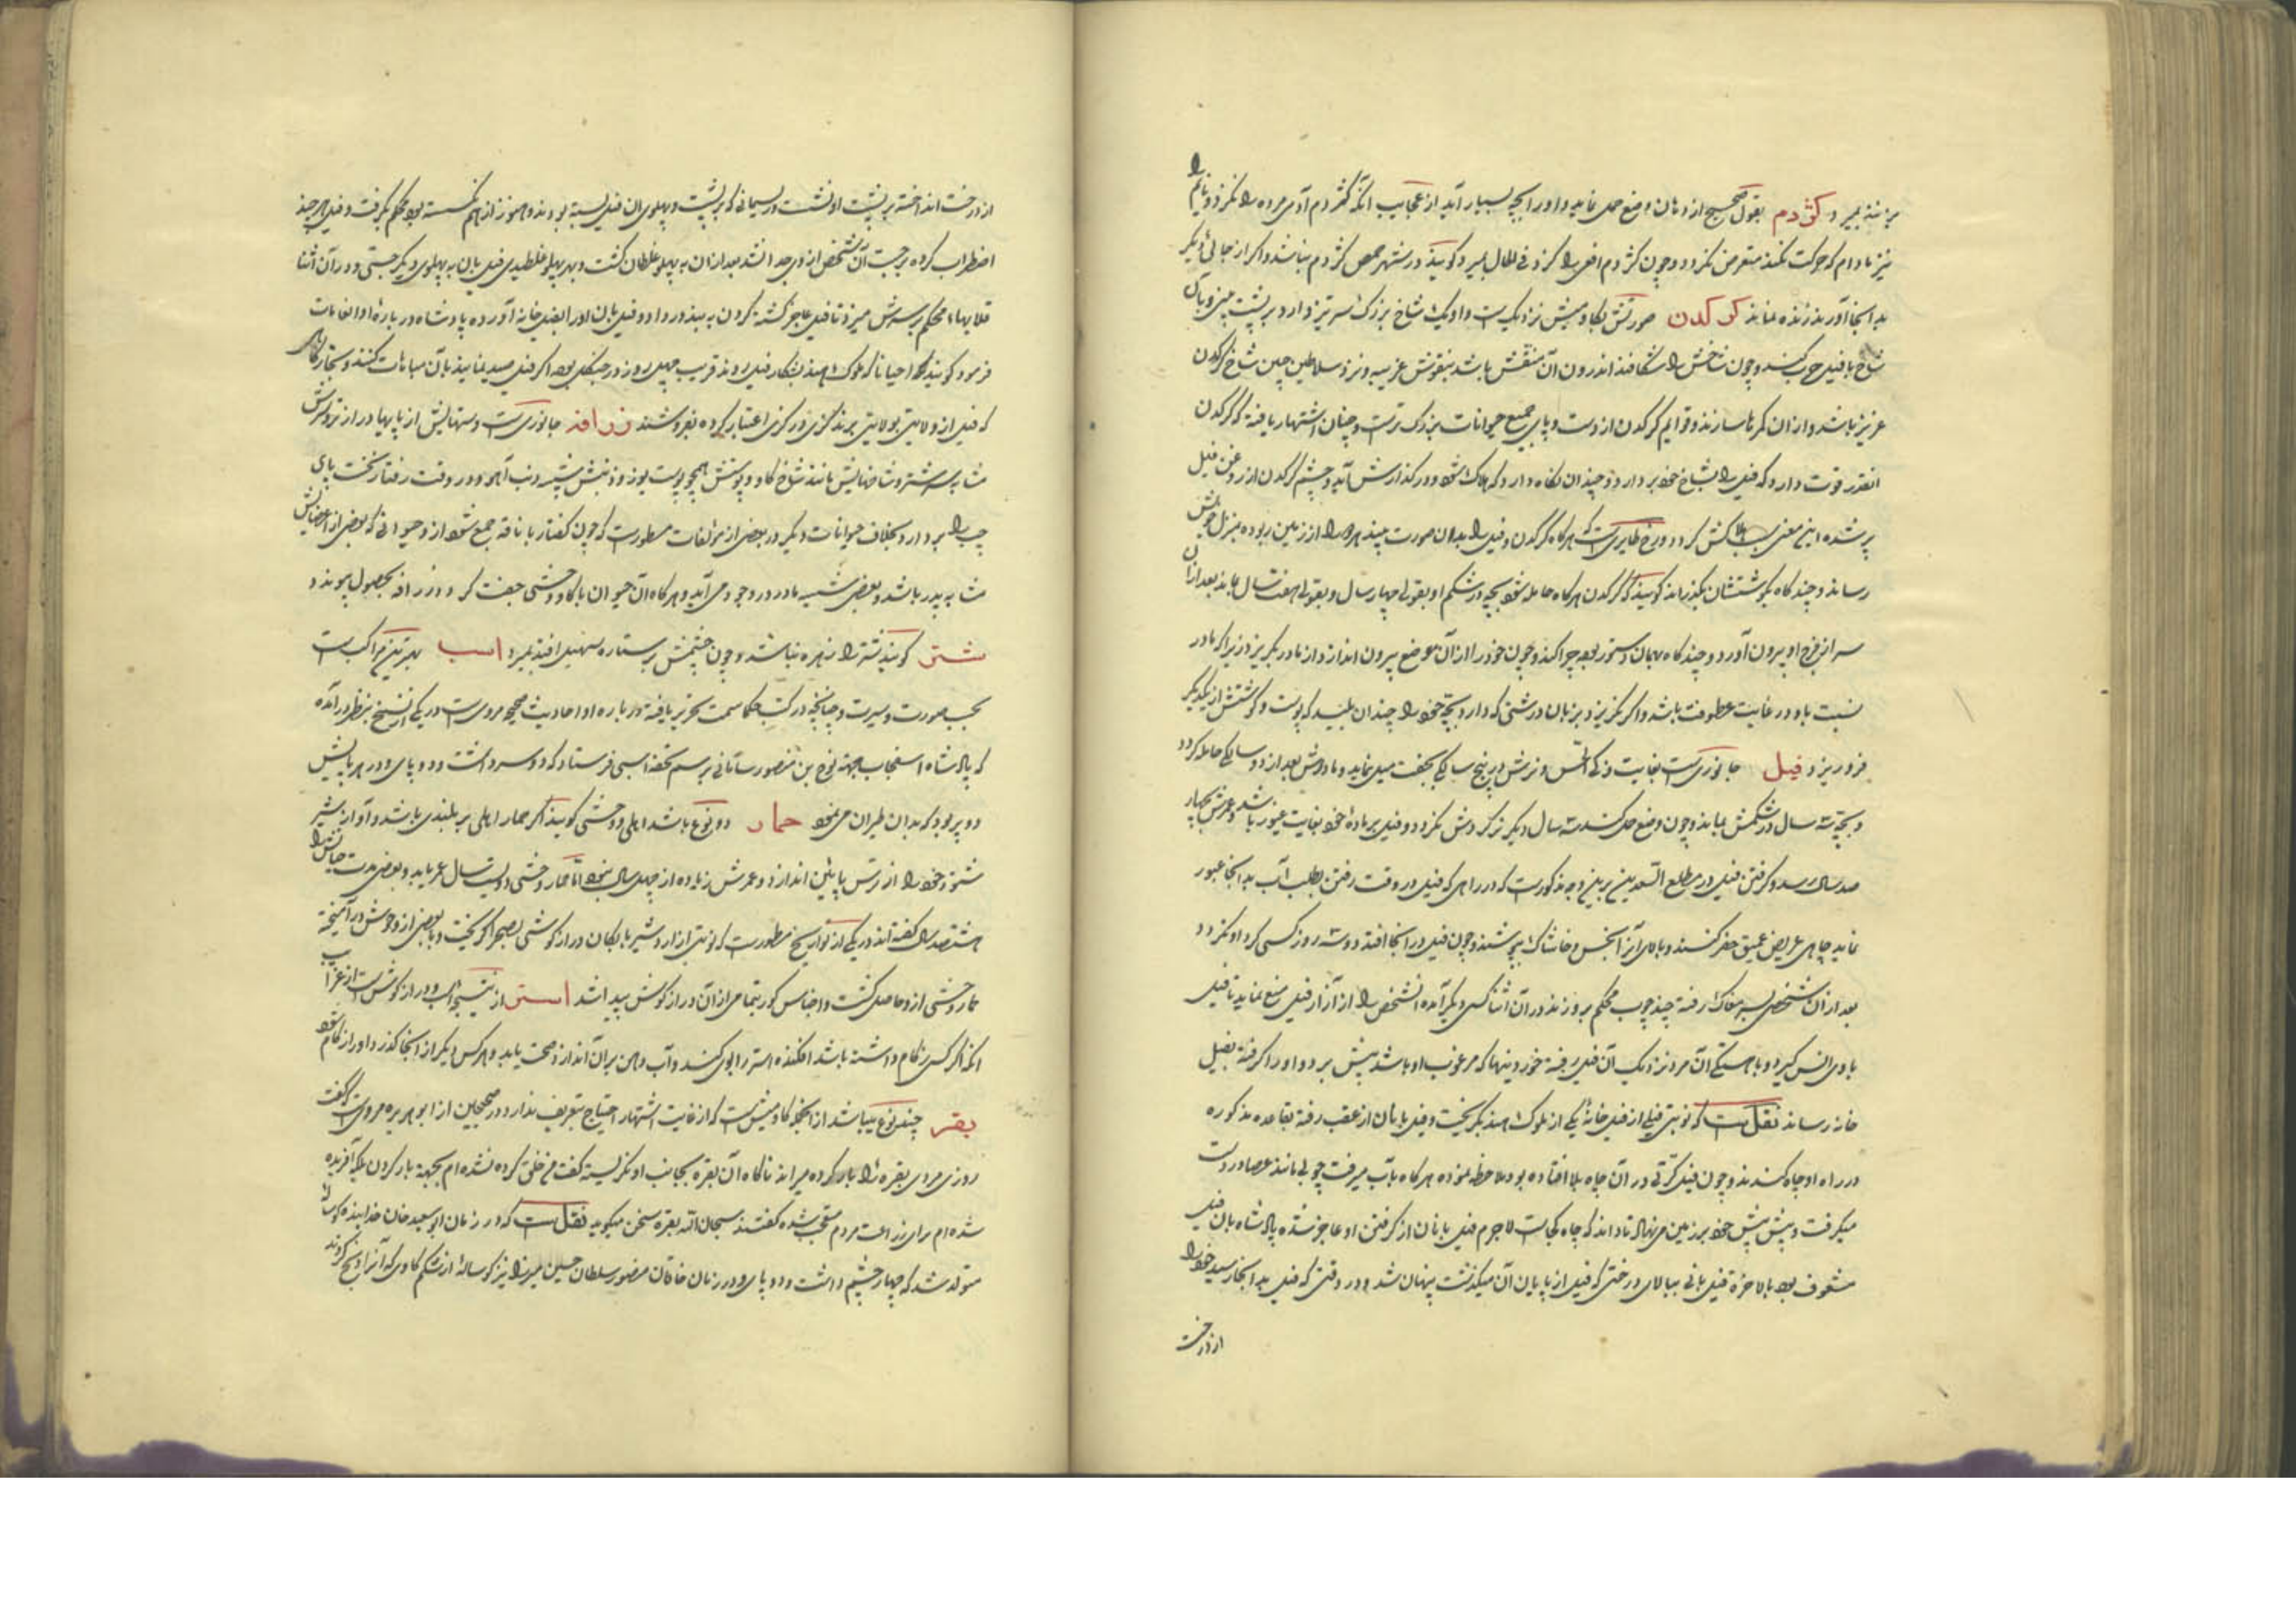 برسد بمیرد کژدم بقول صحیح از دهان وضع حمل نماید و او را بچه بسیار آید از عجایب آنکه کژدم آدمی مرده را نگزد و نایم را
نیز مادام که حرکت نکند متعرض نگردد و چون کژدم افعی را گزد فی الحال بمیرد و گویند در شهر حمص کژدم نباشد و اگر از جائی دیگر
بدانجا آورند زنده نماند کرکدن صورتش بگاومیش نزدیکست و او یک شاخ بزرگ سر تیز دارد بر پشت بینی و بآن
شاخ با فیل حرب کند و چون شاخش را بشکافند اندرون آن منقش باشد بنقوش غریبه و نزد سلاطین چین شاخ کرکدن
عزیز باشد و از ان کمرها سازند و قوایم کرکدن از دست و پای جمیع حیوانات بزرگ ترست و چنان اشتهار یافته که کرکدن
انقدر قوت دارد که فیل را بشاخ خود بردارد و چندان نگاه دارد که هلاک شود و در گذارش آید و چشم کرکدن از روغن فیل
پر شده این معنی سبب هلاکش گردد و رخ طایریست که هرگاه کرکدن و فیل را بدان صورت بیند هر دو را از زمین ربوده بمنزل خویش
رساند و چندگاه بگوشتشان بگذراند گویند که کرکدن هرگاه حامله شود بچه در شکم او بقولی چهار سال و بقولی هفت سال بماند بعد ازان
سر از فرج او بیرون آورد و چندگاه بهمان دستور بوده چرا کند و چون خود را از آن موضع بیرون اندازد از مادر بگریزد زیرا که مادر
نسبت باو در غایت عطوفت باشد و اگر نگریزد بزبان درشتی که دارد بچه خود را چندان بلیسد که پوست و گوشتش از یکدیگر
فرو ریزد فیل جانوریست بغایت ذکی الحس و نرش در پنج سالگی بجفت میل نماید و ماده‌اش بعد از دو سالگی حامله گردد
و بچه سه سال در شکمش بماند و چون وضع حمل کند سه سال دیگر نر گردش نگردد و فیل بر ماده خود بغایت غیور باشد و عمرش بچهار
صد سال رسد و گرفتن فیل در مطلع السعدین برین وجه مذکورست که در راهی که فیل در وقت رفتن بطلب آب بدانجا عبور
نماید چاهی عریض عمیق حفر کنند و بالای آنرا بخس و خاشاک بپوشند و چون فیل در انجا افتد دو سه روز کسی گرد او نگردد
بعد از ان شخصی بسر مغاک رفته چند چوب محکم برو زند در آن اثنا کسی دیگر آمده آنشخص را از آزار فیل منع نماید تا فیل
با وی انس گیرد و باهستگی آن مرد نزدیک آن فیل رفته خوردنیها که مرغوب او باشد پیش برد و او را گرفته بفیل
خانه رساند نقلست که نوبتی فیلی از فیلخانهٔ یکی از ملوک هند بگریخت و فیل بانان از عقب رفته بقاعده مذکوره
در راه او چاه کندند و چون فیل کرتی در آن چاه بلا افتاده بود ملاحظه نموده هرگاه بآب میرفت چوبی مانند عصا در دست
میگرفت و پیش پیش خود بر زمین می‌نهاد تا داند که چاه کجاست لاجرم فیل بانان از گرفتن او عاجز شده پادشاه بان فیل
مشعوف بود بالاخره فیل بانی ببالای درختی که فیل از پایان آن میگذشت پنهان شد و در وقتی که فیل بدانجا رسید خود را
از درخت
از درخت انداخته بر پشت او نشست و ریسمانی که بر پشت و پهلوی ان فیل بسته بودند و هنوز از هم نگسسته بود محکم بگرفت و فیل هرچند
اضطراب کرده برجست آن شخص از وی جدا نشد بعد از ان به پهلو غلطان گشت و بهر پهلو غلطیدی فیل بان به پهلوی دیگر جستی و در آن اثنا
قلابها محکم بر سرش میزد تا فیل عاجز گشته گردن به بند در داد و فیل بان او را بفیل خانه آورده پادشاه در باره او انعامات
فرمود گویند که احیانا که ملوک هند بشکار فیل روند قریب چهل روز در جنگل بوده اگر فیل صید نمایند بآن مباهات کنند و تجار گاهی
که فیل از ولایتی بولایتی برند گزی در گزی اعتبار کرده بفروشند زرافه جانوریست دستهایش از پایها دراز تر و سرش
مشابه سر شتر و شاخهایش مانند شاخ گاو و پوستش همچو پوست یوز و ذنبش شبیه ذنب آهو و در وقت رفتار نخست پای
چپ را بردارد بخلاف حیوانات دیگر در بعضی از مؤلفات مسطورست که چون کفتار با ناقه جمع شود از و حیوانی که بعضی از اعضایش
مشابه پدر باشد و بعضی شبیه مادر در وجود می‌آید و هرگاه آن حیوان با گاو وحشی جفت گردد زرافه بحصول پیوندد
شتر گویند شتر را زهره نباشد و چون چشمش بر ستاره سهیل افتد بمیرد اسب بهترین مراکبست
بحسب صورت و سیرت و چنانچه در کتب حکما سمت تحریر یافته درباره او احادیث صحیحه مرویست در یکی از نسخ بنظر در آمده
که پادشاه اسفنجاب بجهة نوح بن منصور سامانی برسم تحفه اسبی فرستاد که دو سر داشت و دو پای و در هر پایش
دو پر بود که بدان طیران می‌نمود حمار دو نوع باشد اهلی و وحشی گویند اگر حمار اهلی بر بلندی باشد و آواز شیر
شنود خود را از ترس پایین اندازد و عمرش زیاده از چهل سال نبود اما حمار وحشی دویست سال عمر یابد و بعضی مدت حیاتش را
هشتصد سال گفته‌اند در یکی از تواریخ مسطورست که نوبتی از اردشیر بابکان دراز گوشی بصحرا گریخت و با بعضی از وحوش در آمیخته
حمار وحشی از و حاصل گشت و اجناس گور بتمامی از آن درازگوش پیدا شد استر از نتیجه اسب و دراز گوشست از غرایب
آنکه اگر کسی زکام داشته باشد افکنده استر را بوی کند و آب دهن بر آن اندازد صحت یابد و هر کس دیگر از انجا گذرد او را زکام شود
بقر چند نوع میباشد از انجمله گاومیش است که از غایت اشتهار احتیاج بتعریف ندارد و در صحیحین از ابوهریره مرویست که گفت
روزی مردی بقره را بار کرده میراند ناگاه آن بقره بجانب او نگریسته گفت من خلق کرده نشده‌ام بجهة بار کردن بلکه آفریده
شده‌ام برای زراعت مردم متعجب شده گفتند سبحان الله بقره سخن میگوید نقلست که در زمان ابوسعید خان خدابنده گوساله
متولد شد که چهار چشم داشت و دو پای و در زمان خاقان منصور سلطان حسین میرزا نیز گوسالهٔ از شکم گاوی که آنرا ذبح کردند